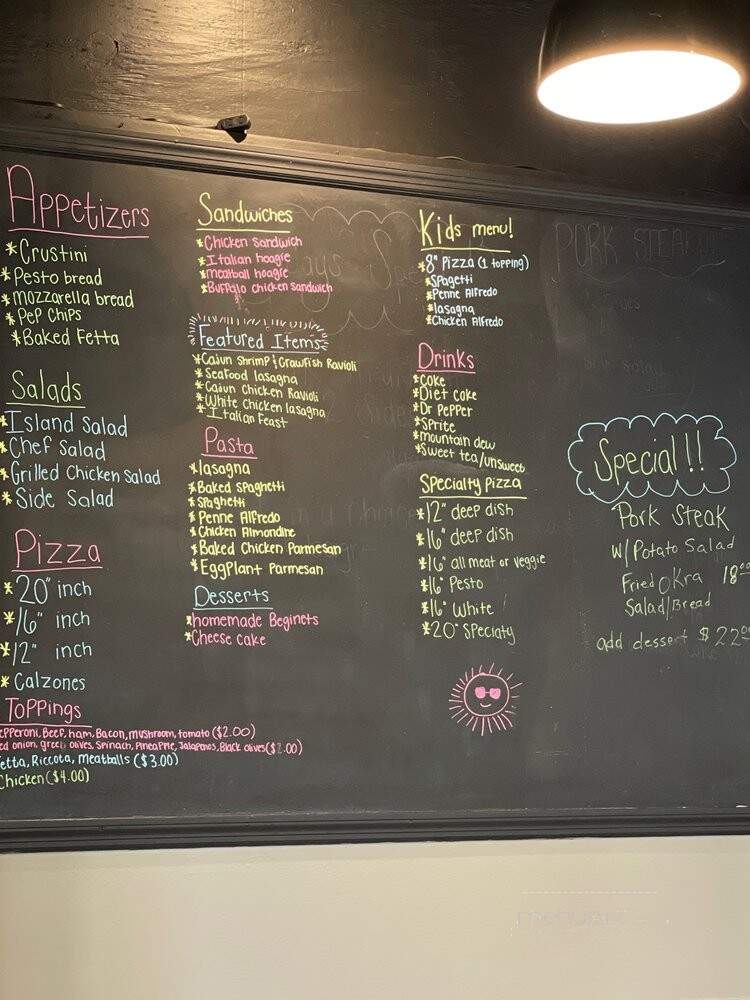 Appetizers
*Crustini
*Pesto bread
*mozzarella bread
*Pep Chips
*Baked Fetta
Salads
*Island Salad
*Chef Salad
*Grilled Chicken Salad
*Side Salad
Pizza
*20" inch
*16" inch
*12" inch
*Calzones
Toppings
epperoni, Beef, ham, Bacon, mushroom, tomato ($2.00)
ed onion, green olives, Spinach, Pineapple, Jalapenos, Black olives ($2.00)
etta, Riccota, meatballs ($3.00)
Chicken ($4.00)
Sandwiches
*Chicken Sandwich
*Italian hoagie
*meatball hoagie
*Buffalo chicken sandwich
Featured Items
*Cajun Shrimp & Crawfish Ravioli
*Seafood lasagna
*Cajun Chicken Ravioli
*White Chicken lasagna
*Italian Feast
Pasta
*lasagna
*Baked Spaghetti
*Spaghetti
*Penne Alfredo
*Chicken Almondine
*Baked Chicken Parmesan
*EggPlant Parmesan
Desserts
*homemade Beginets
*Cheese cake
Kids menu!
*8" Pizza (1 topping)
*Spagetti
*Penne Alfredo
*lasagna
*Chicken Alfredo
Drinks
*Coke
*Diet coke
*Dr Pepper
*Sprite
*mountain dew
*Sweet tea/unsweet
Specialty Pizza
*12" deep dish
*16" deep dish
*16" all meat or veggie
*16" Pesto
*16" White
*20" Specialty
PORK STEAK
Special!!
Pork Steak
W/Potato Salad
Fried Okra 18.00
Salad/Bread
add dessert $22.00